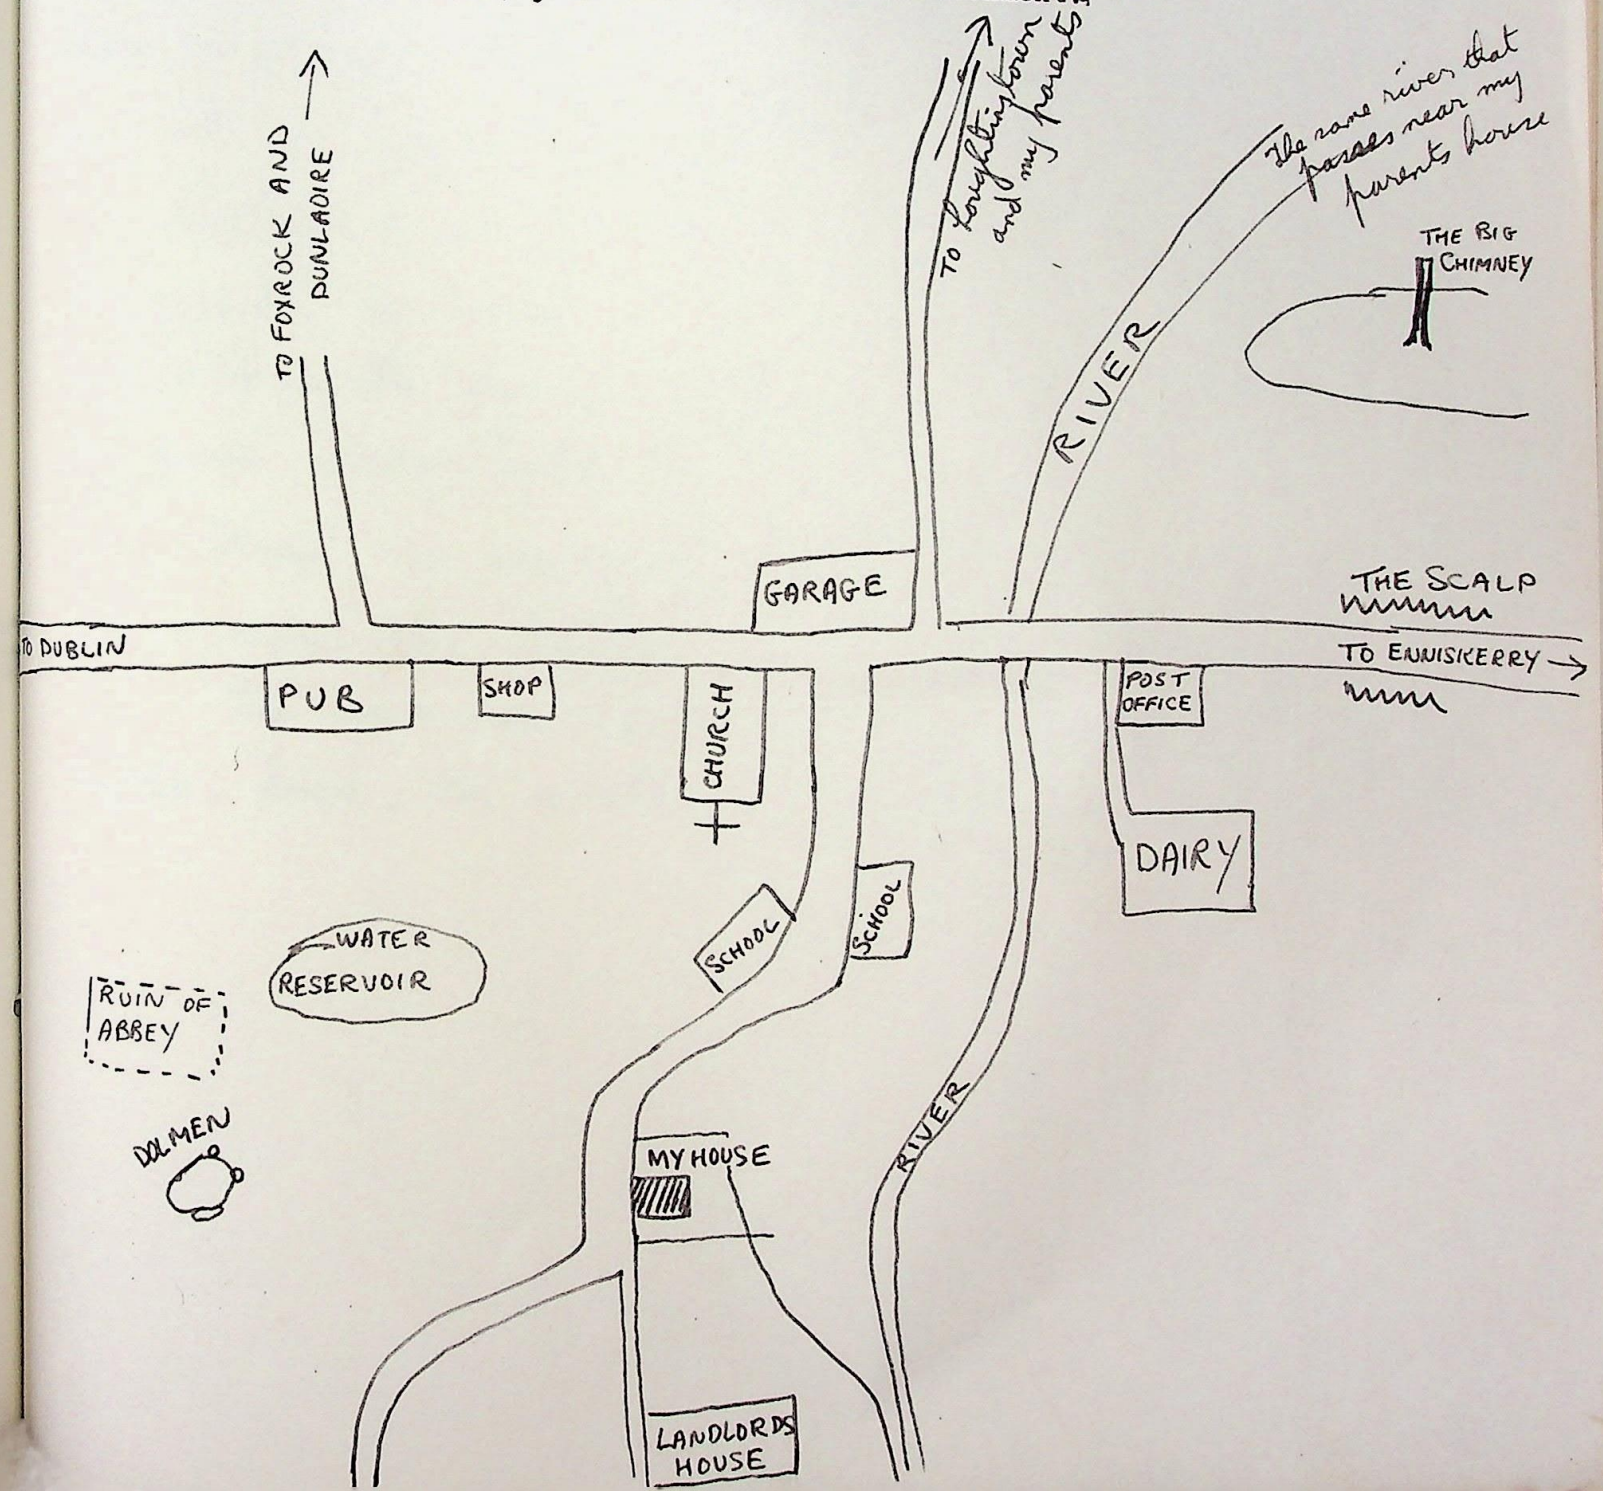 TO FOXROCK AND
DUNLAOIRE
TO Loughlinstown
and my parents
The same river that
passes near my
parents house
THE BIG
CHIMNEY
RIVER
GARAGE
THE SCALP
TO DUBLIN
TO ENNISKERRY
PUB
SHOP
CHURCH
POST
OFFICE
DAIRY
SCHOOL
SCHOOL
WATER
RESERVOIR
RUIN OF
ABBEY
DOLMEN
RIVER
MY HOUSE
LANDLORDS
HOUSE